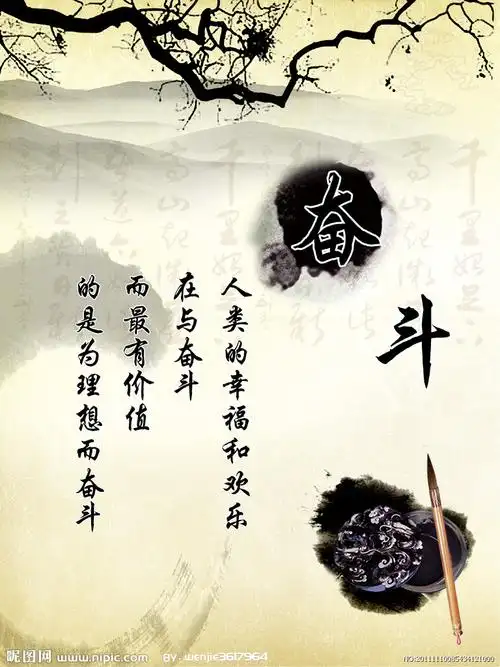 奋
斗
人类的幸福和欢乐
在与奋斗
而最有价值
的是为理想而奋斗
昵图网
www.nipic.com
BY:wenjie3617964
NO:20111110085434121000